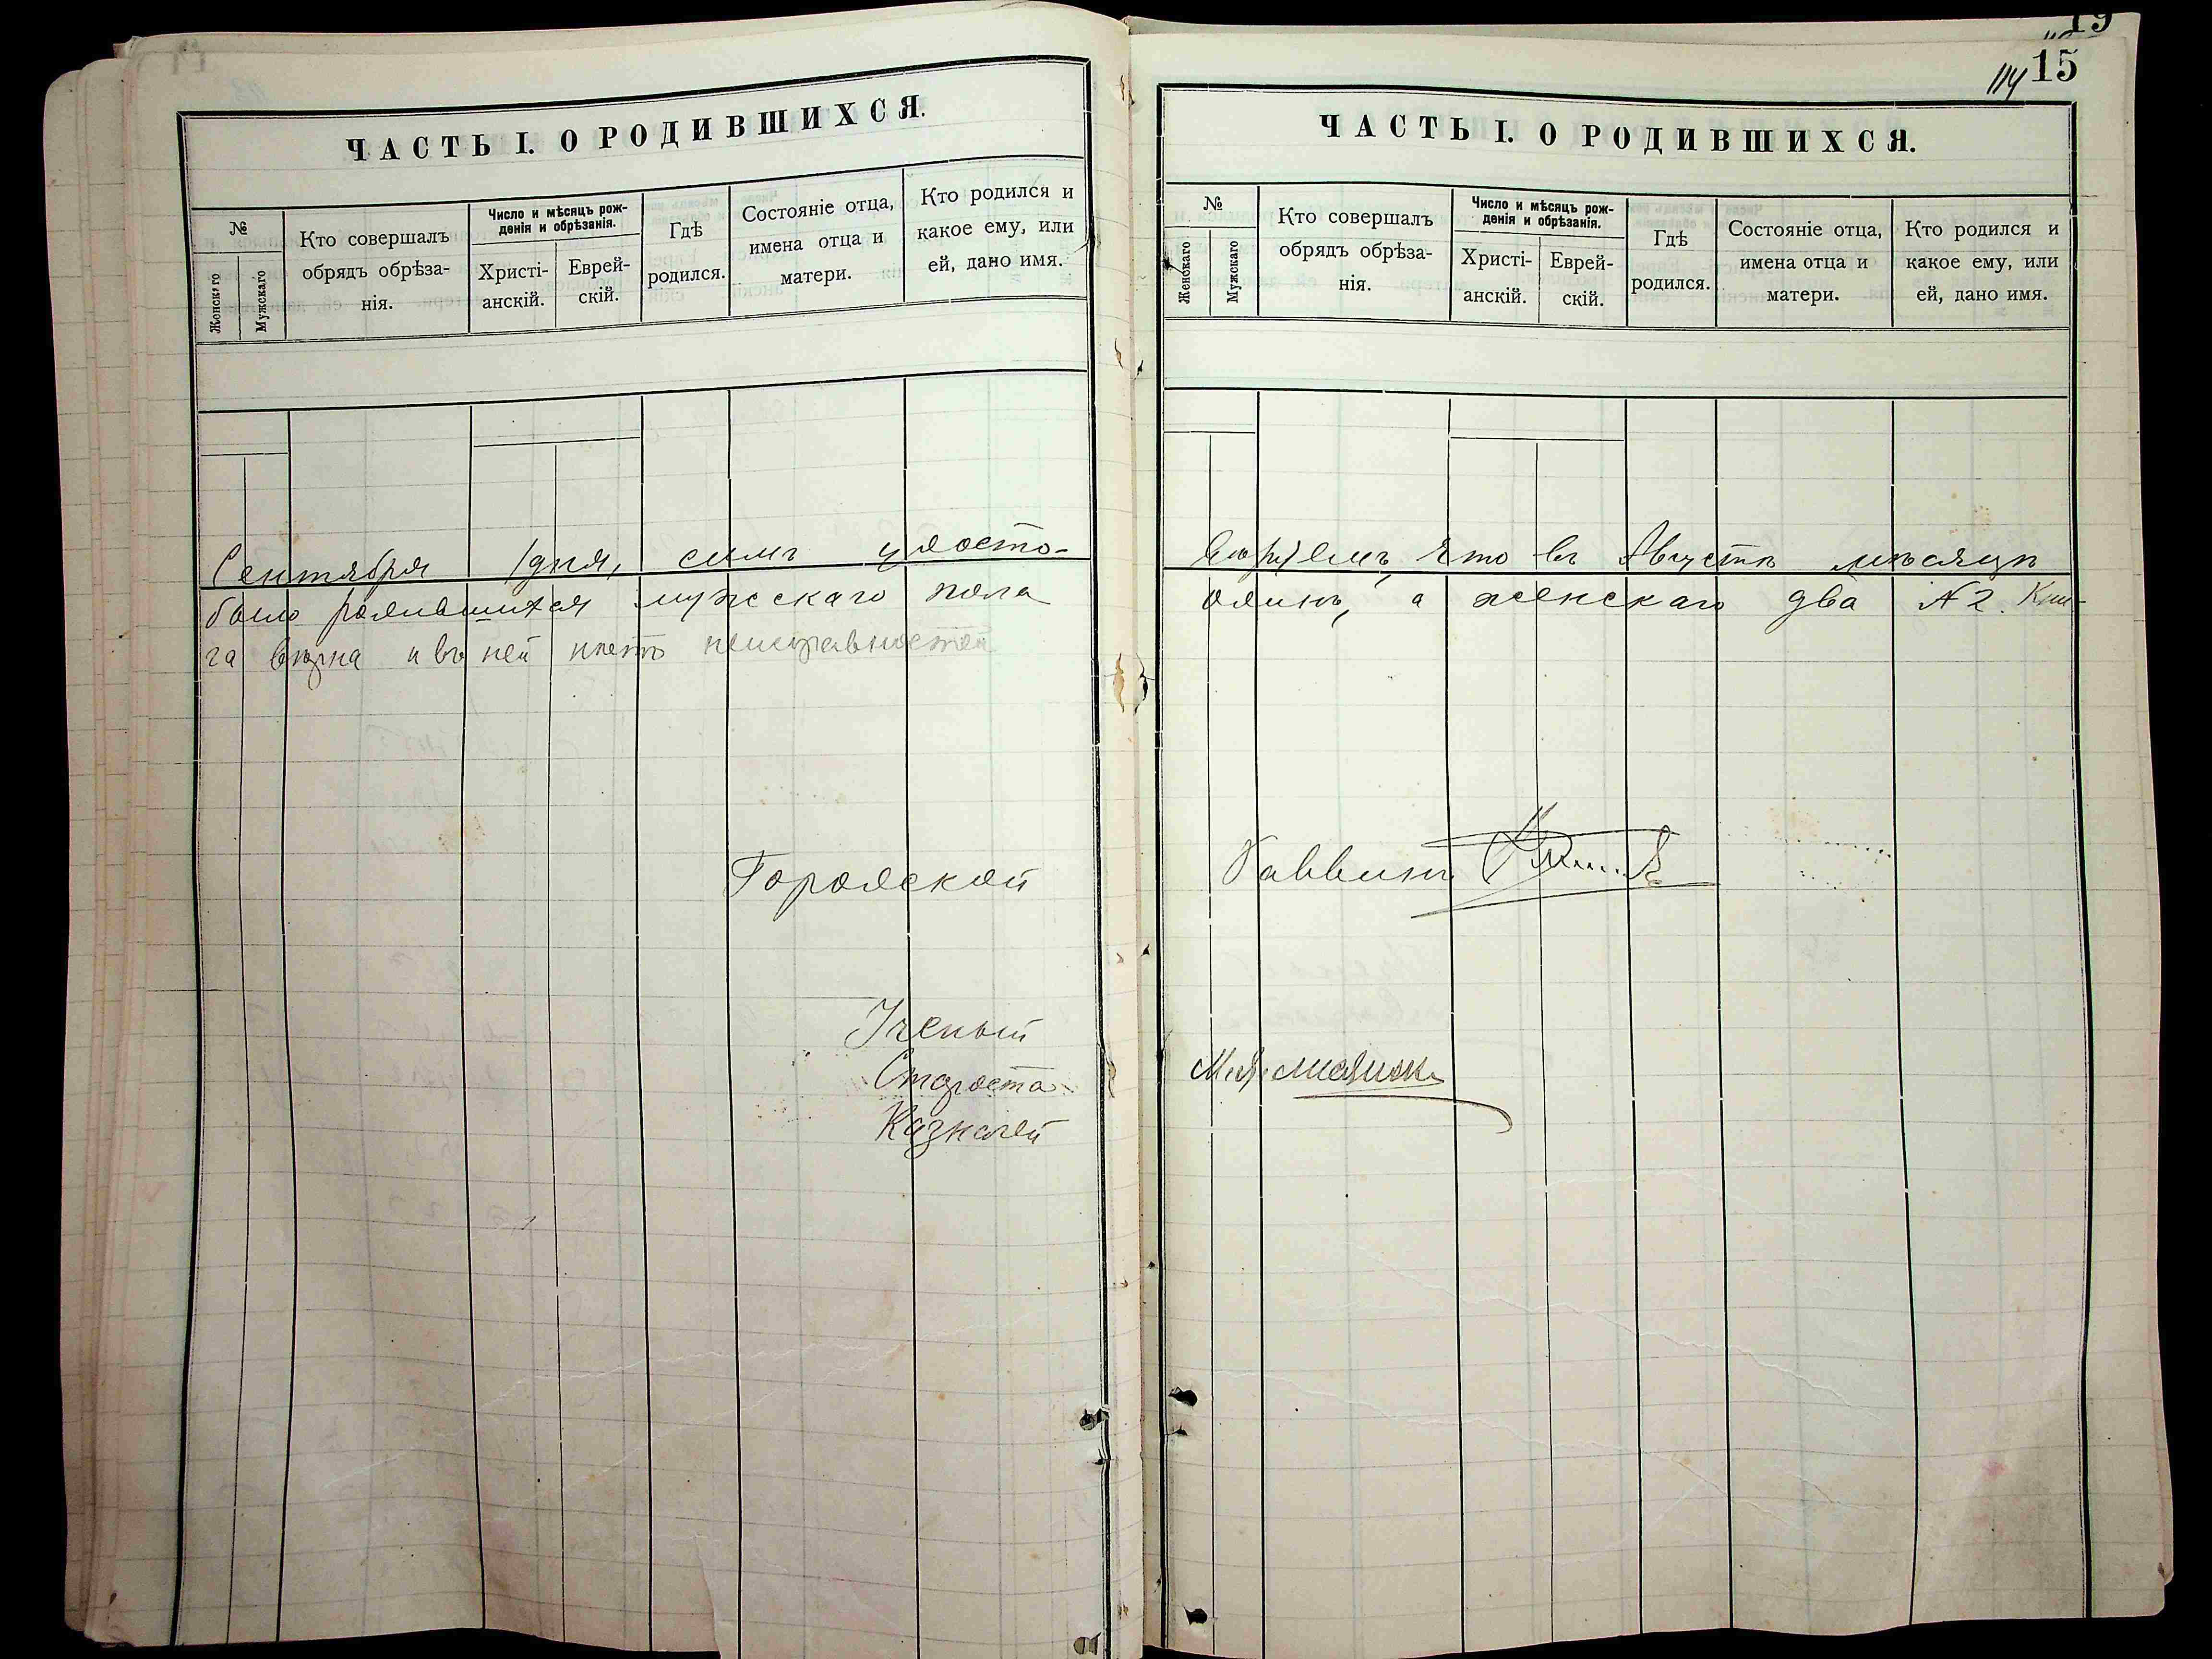 19
114 15
ЧАСТЬ I. О РОДИВШИХСЯ.
№
Женскаго
Мужскаго
Кто совершалъ
обрядъ обрѣза-
нія.
Число и мѣсяцъ рож-
денія и обрѣзанія.
Христі-
анскій.
Еврей-
скій.
Гдѣ
родился.
Состояніе отца,
имена отца и
матери.
Кто родился и
какое ему, или
ей, дано имя.
Сентября 1 дня, симъ удосто-
было родившихся мужскаго пола
га вѣрна и въ ней нѣтъ неисправностей
Городской
Ученый
Староста
Казначей
ЧАСТЬ I. О РОДИВШИХСЯ.
№
Женскаго
Мужскаго
Кто совершалъ
обрядъ обрѣза-
нія.
Число и мѣсяцъ рож-
денія и обрѣзанія.
Христі-
анскій.
Еврей-
скій.
Гдѣ
родился.
Состояніе отца,
имена отца и
матери.
Кто родился и
какое ему, или
ей, дано имя.
что въ Августѣ мѣсяцѣ
одинъ, а женскаго два № 2. Кни-
Раввинъ